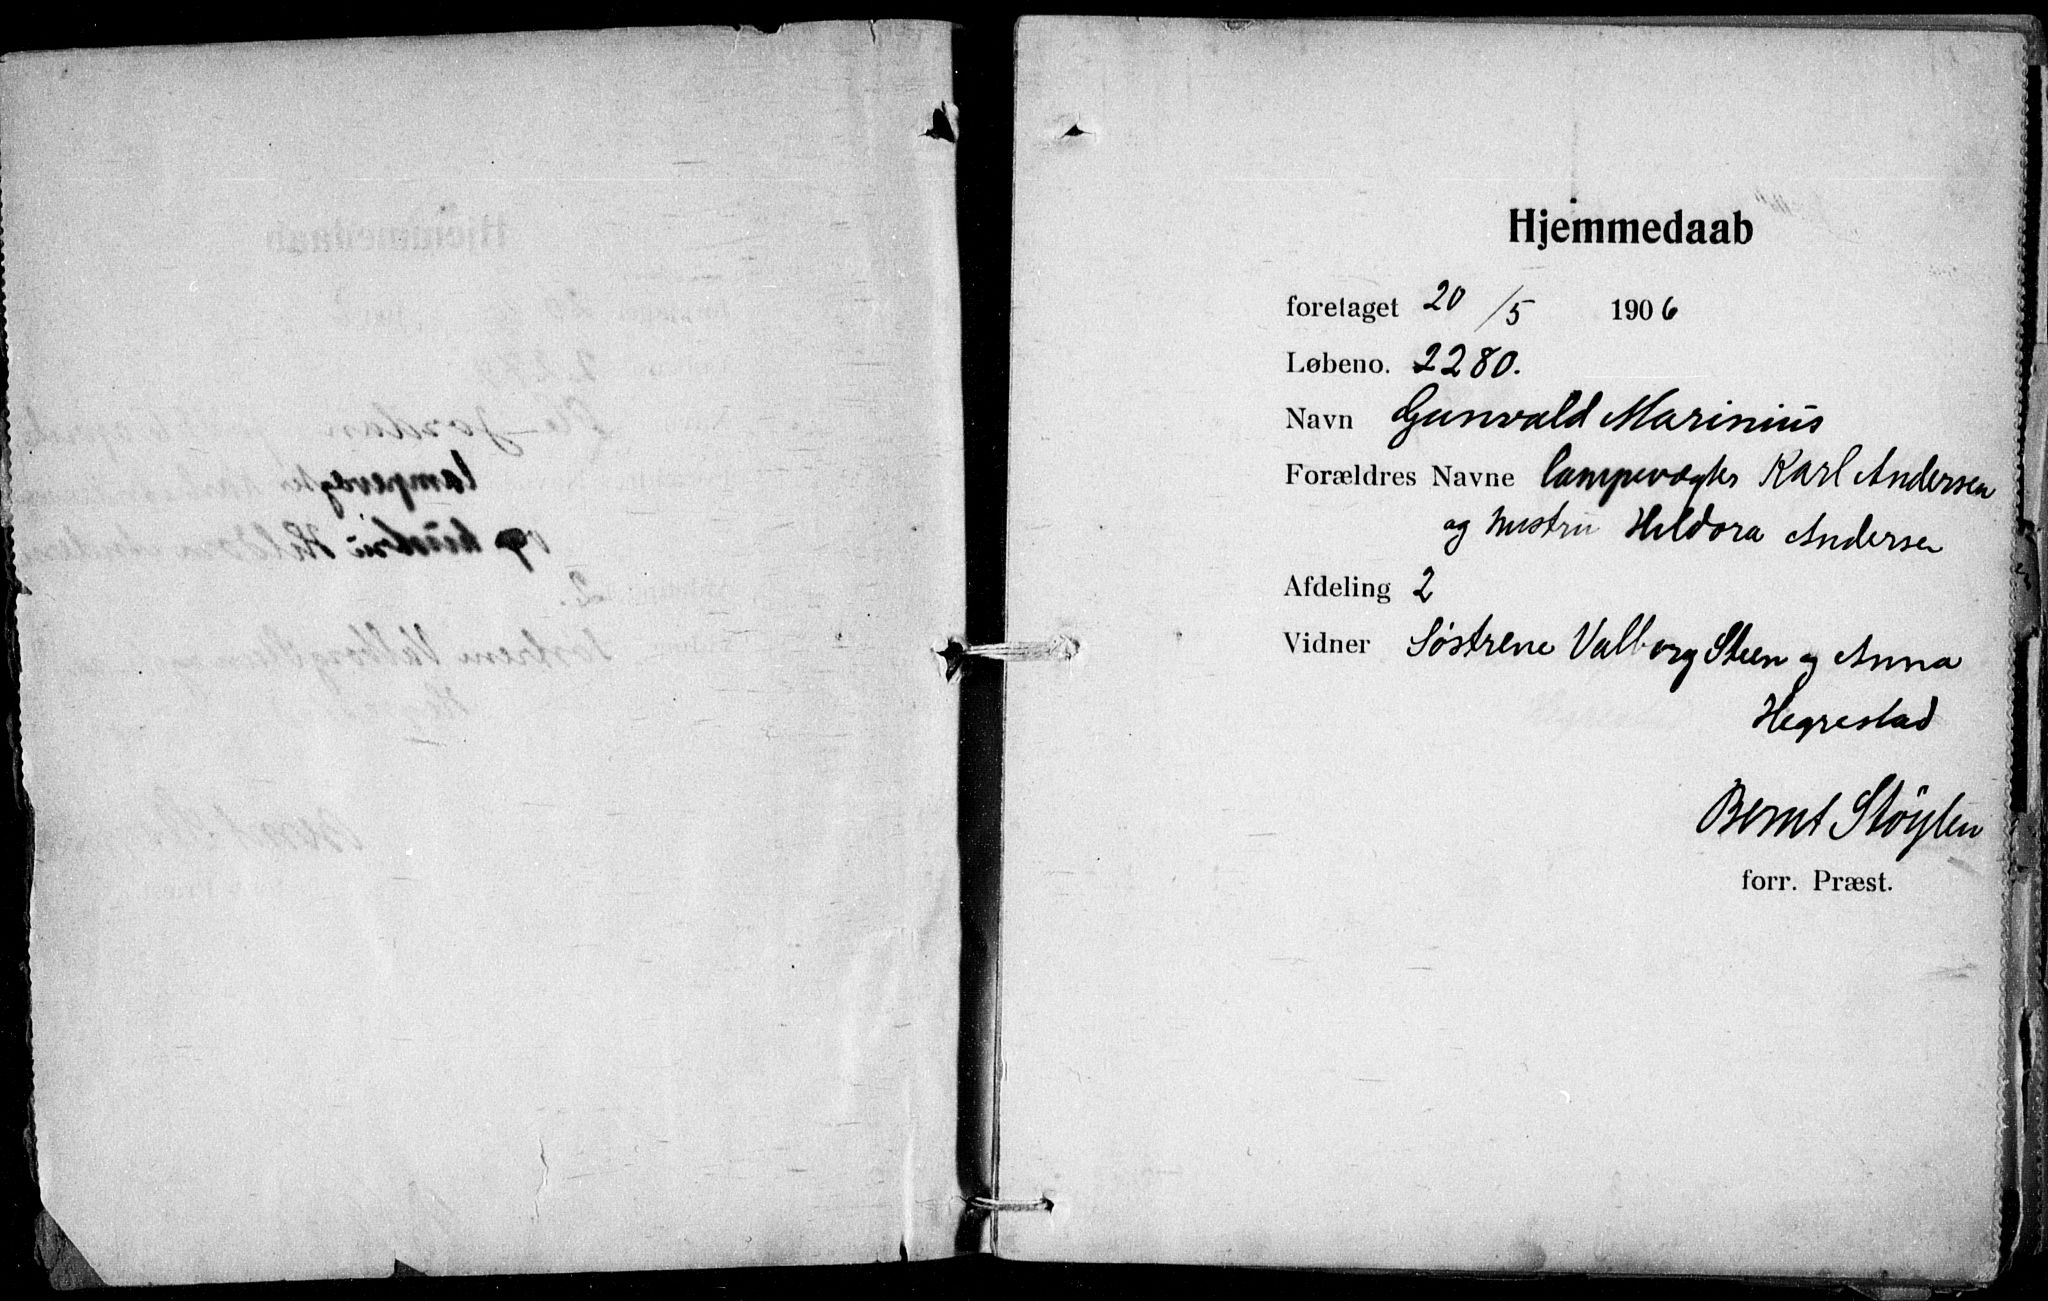 Hjemmedaab
foretaget 20/5 1906
Løbeno. 2280.
Navn Gunvald Marinius
Forældres Navne lampevægter Karl Andersen
og hustru Hildora Andersen
Afdeling 2
Vidner Søstrene Valborg Steen og Anna
Hegrestad
Bernt Støylen
forr. Præst.